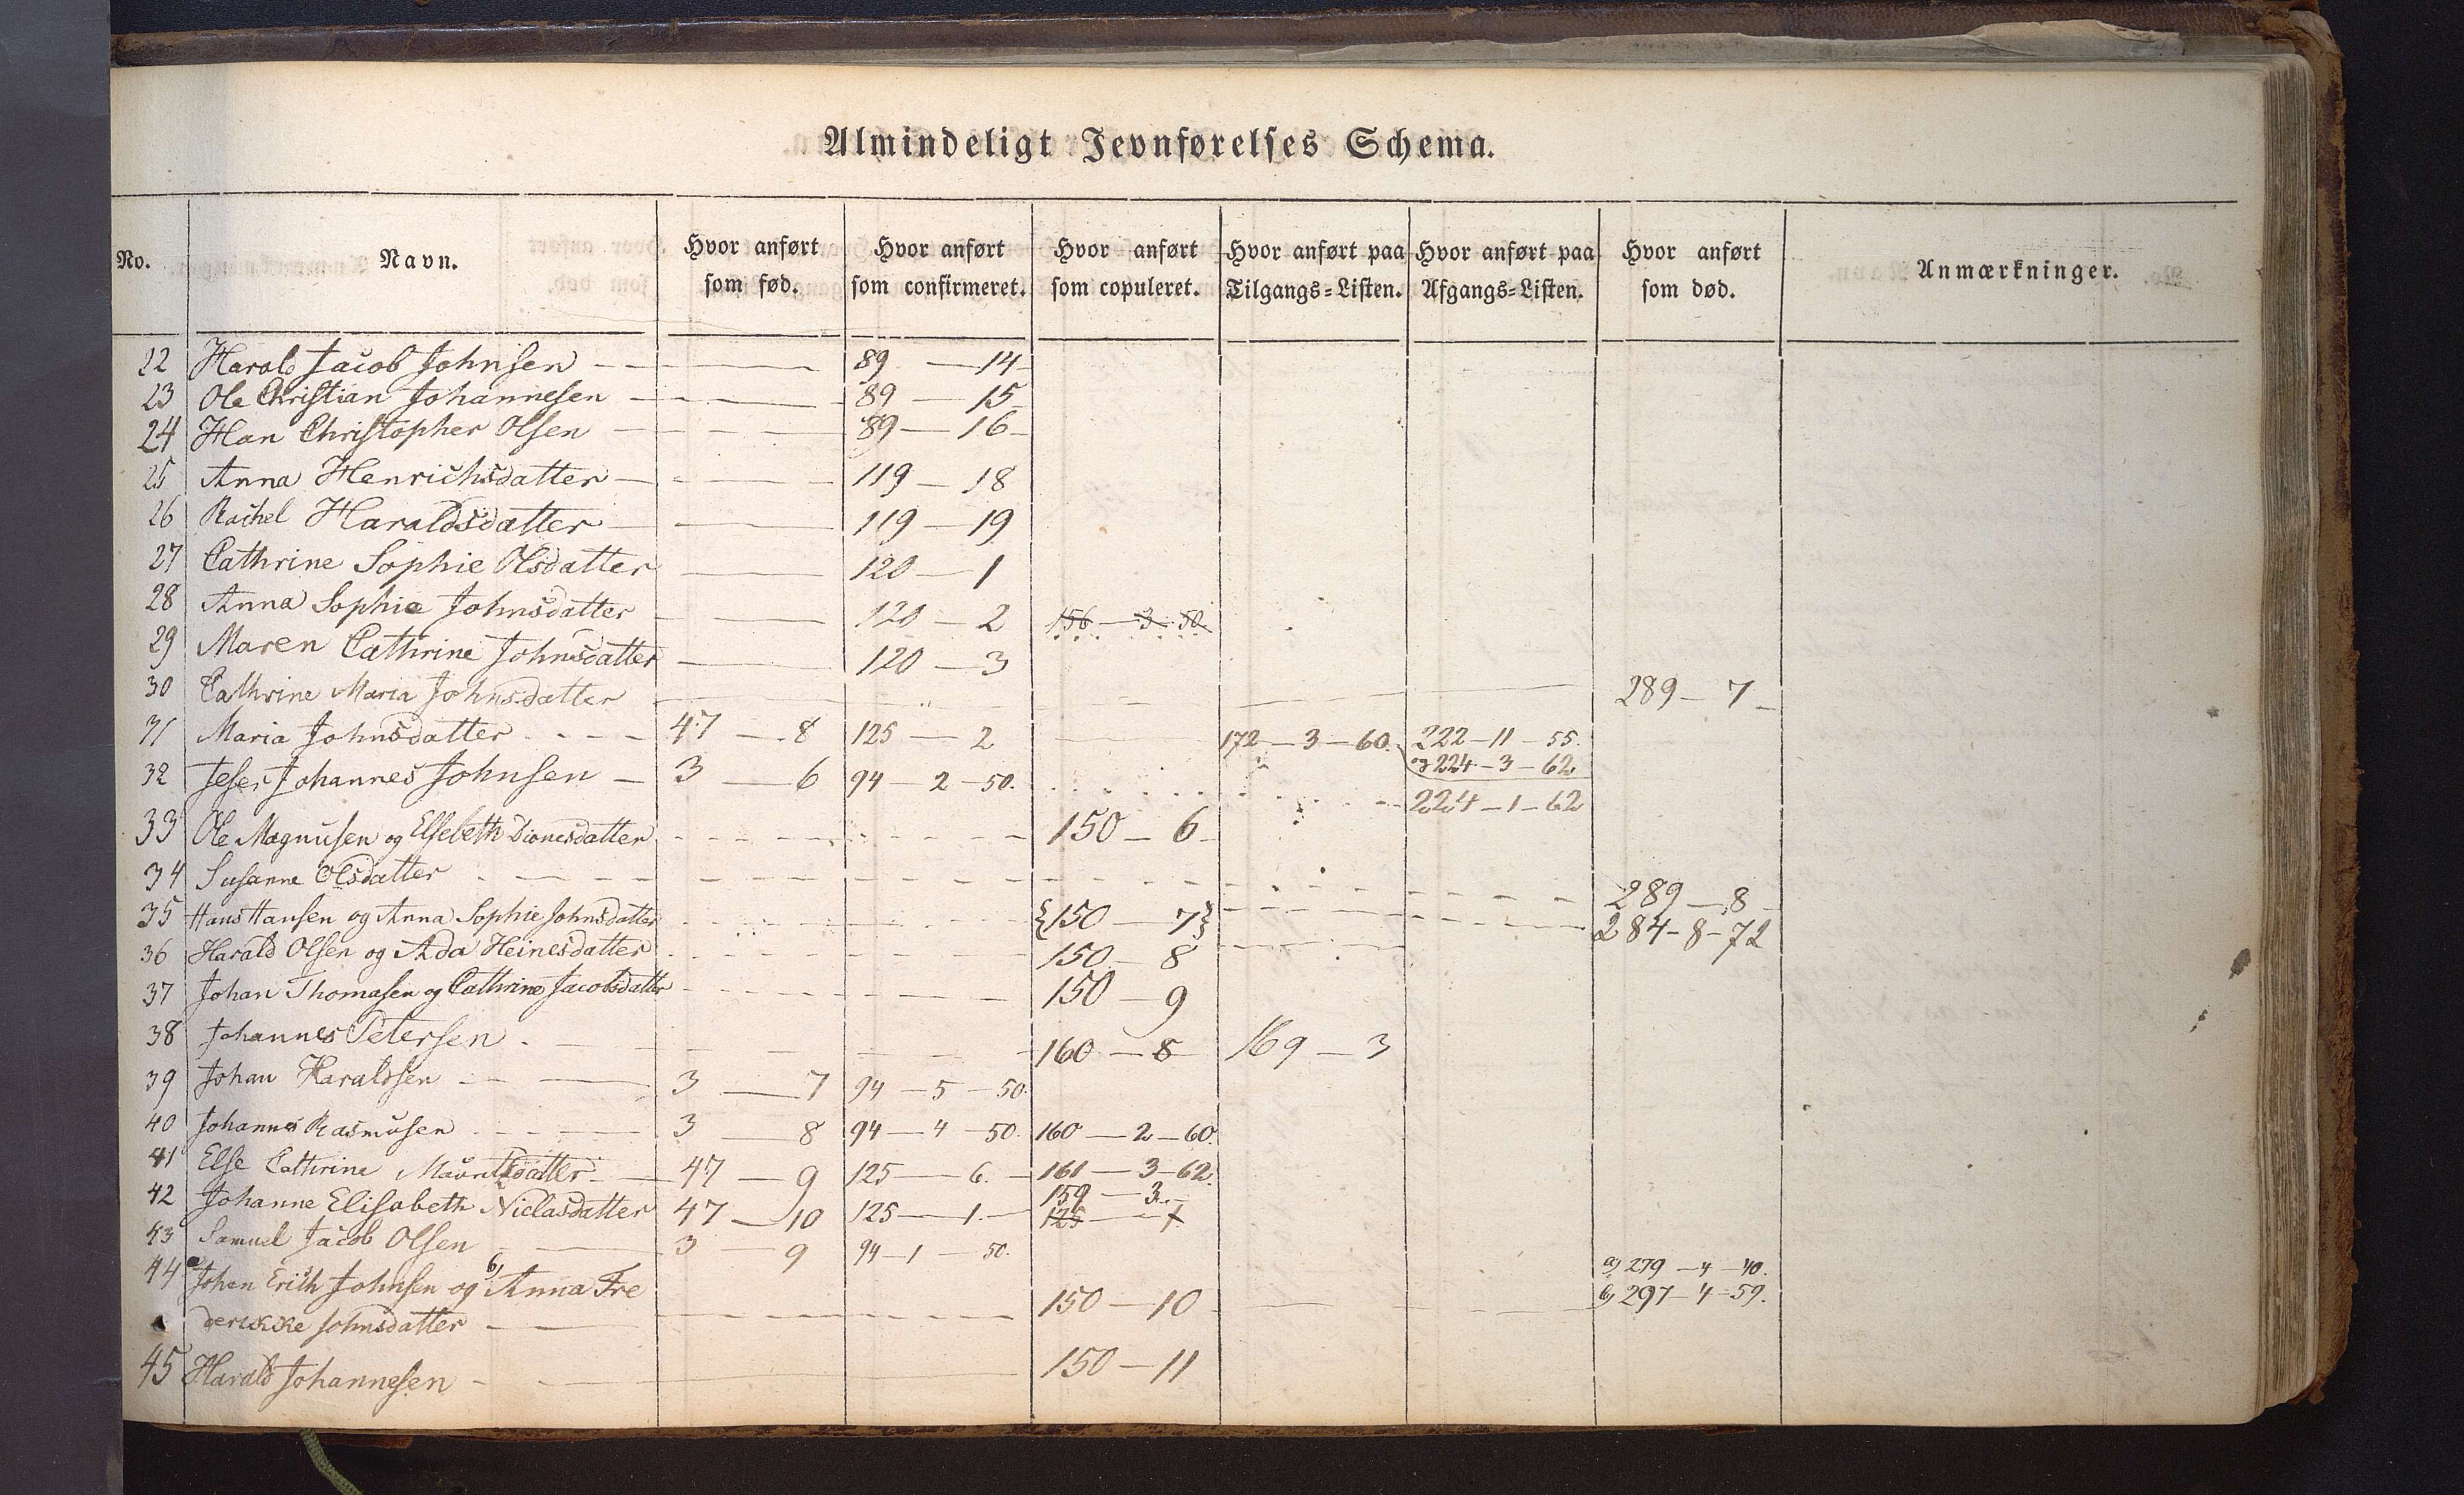 Almindeligt Jevnførelses Schema.
No. Navn. Hvor anført som fød. Hvor anført som confirmeret. Hvor anført som copuleret. Hvor anført paa Tilgangs-Listen. Hvor anført paa Afgangs-Listen. Hvor anført som død. Anmærkninger.
22 Harald Jacob Johnsen 89 — 14
23 Ole Christian Johannesen 89 — 15
24 Han Christopher Olsen 89 — 16
25 Anna Henrichsdatter 119 — 18
26 Rachel Haraldsdatter 119 — 19
27 Cathrine Sophie Olsdatter 120 — 1
28 Anna Sophie Johnsdatter 120 — 2 156 — 3 50.
29 Maren Cathrine Johnsdatter 120 — 3
30 Cathrine Maria Johnsdatter 289 — 7
31 Maria Johnsdatter 47 — 8 125 — 2 172 — 3 — 60. 222 — 11 — 55.
og 224 — 3 — 62
32 Johannes Johnsen 3 — 6 94 — 2 — 50. 224 — 1 — 62
33 Ole Magnusen og Elsebeth Dionesdatter 150 — 6
34 Susanne Olsdatter 289 — 8
35 Hans Hansen og Anna Sophie Johnsdatter {150 — 7} 284 - 8 - 72
36 Harald Olsen og Ada Heinesdatter 150 — 8
37 Johan Thomasen og Cathrine Jacobsdatter 150 — 9
38 Johannes Petersen 160 — 8 169 — 3
39 Johan Haraldsen 3 — 7 94 — 5 — 50.
40 Johannes Rasmusen 3 — 8 94 — 4 — 50. 160 — 2 — 60.
41 Else Cathrine Mauritsdatter 47 — 9 125 — 6. 161 — 3 — 62.
42 Johanne Elisabeth Niclasdatter 47 — 10 125 — 1. 159 — 3.
125 — 1.
43 Samuel Jacob Olsen 3 — 9 94 — 1 — 50.
44 a) Johan Erich Johnsen og b) Anna Fre a) 279 — 4 — 40.
derikke Johnsdatter 150 — 10 b) 297 — 4 — 59.
45 Harald Johannesen 150 — 11